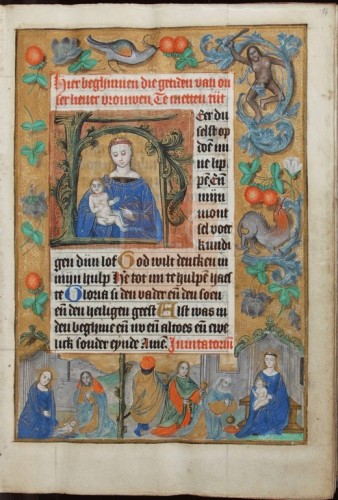 Hier beghinnen die getiden van on
ser liever vrouwen. Te metten tijt
Heer du
selst op
doen mi
ne lip
pē eñ
mijn
mont
sel voer
kundi
gen dijn lof God wilt dencken in
mijn hulp He tot mi te hulpē haes
te Gloria si den vader eñ den soen
eñ den heilighen geest Alst was in
den beghine eñ nv eñ altoes eñ ewe
lick sonder eynde Amē. Inuitatoriū